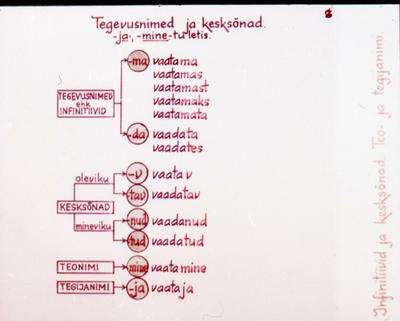 Tegevusnimed ja kesksõnad.
-ja-, -mine-tuletis.
TEGEVUSNIMED
ehk
INFINITIIVID
-ma vaatama
vaatamas
vaatamast
vaatamaks
vaatamata
-da vaadata
vaadates
KESKSÕNAD
oleviku
-v vaatav
-tav vaadatav
mineviku
-nud vaadanud
-tud vaadatud
TEONIMI -mine vaatamine
TEGIJANIMI -ja vaataja
Infinitiivid ja kesksõnad. Teo- ja tegijanimi.